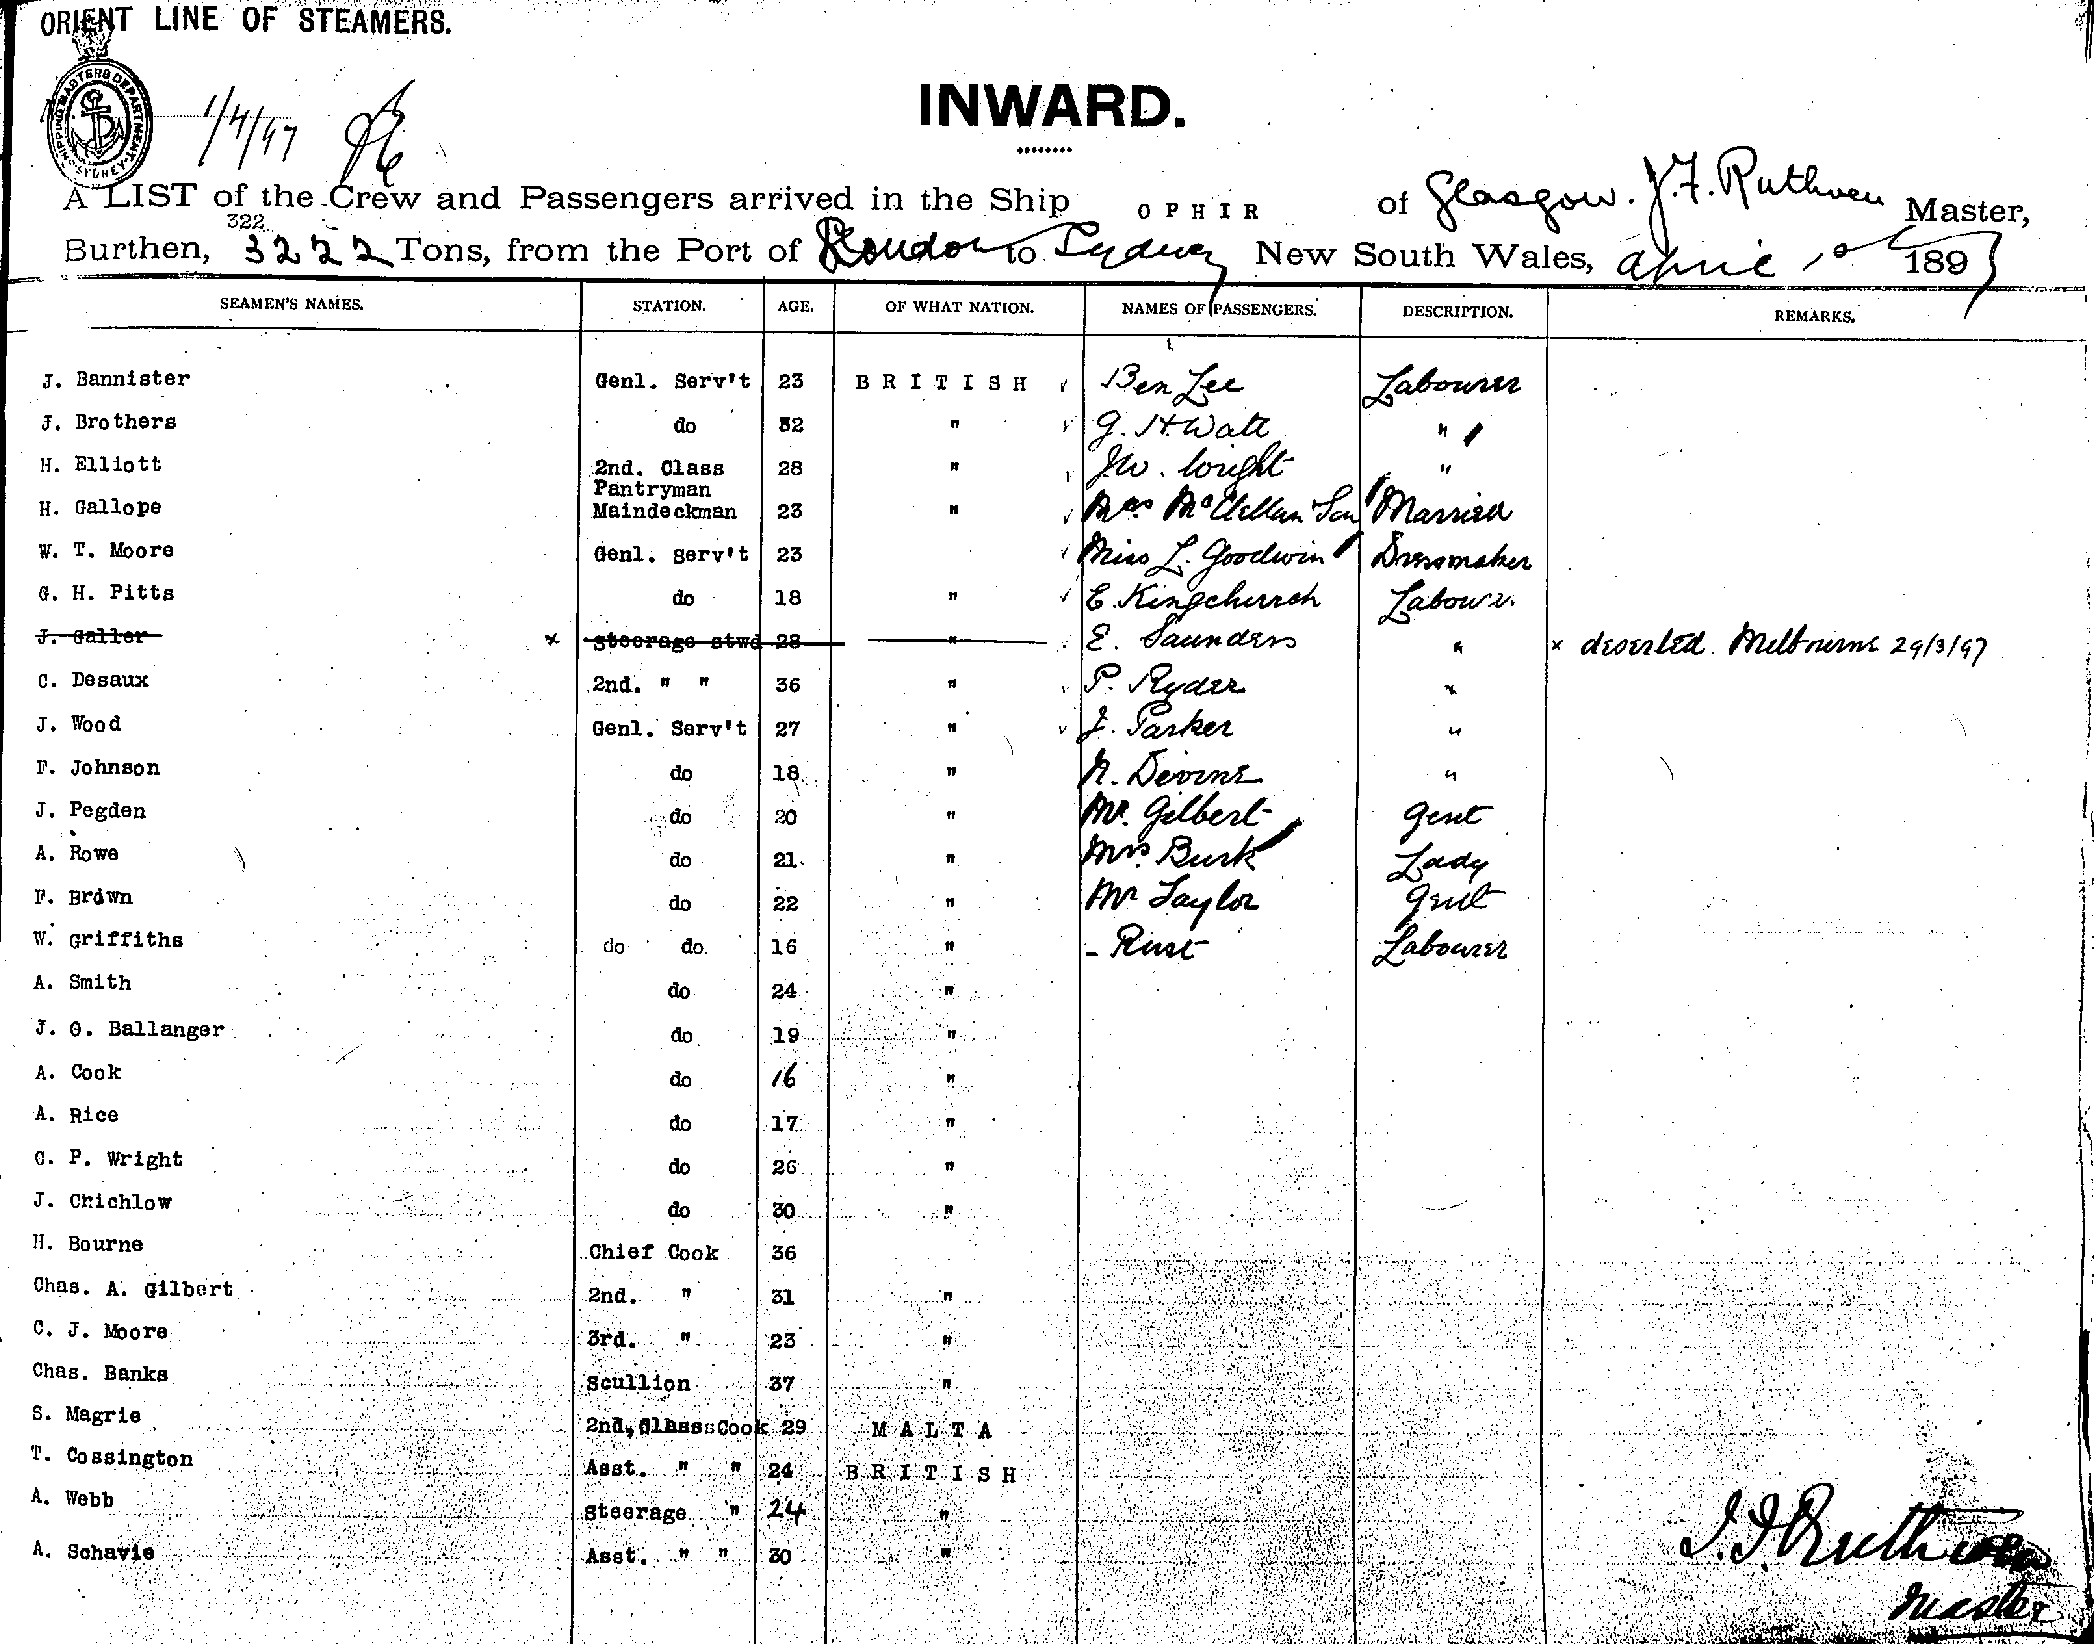 ORIENT LINE OF STEAMERS.
SHIPPING MASTERS DEPARTMENT SYDNEY
1/4/97
INWARD.
A LIST of the Crew and Passengers arrived in the Ship OPHIR of Glasgow. J.F. Ruthven Master,
322
Burthen, 3222 Tons, from the Port of London to Sydney New South Wales, April 1st 1897
SEAMEN'S NAMES. STATION. AGE. OF WHAT NATION. NAMES OF PASSENGERS. DESCRIPTION. REMARKS.
J. Bannister Genl. Serv't 23 BRITISH Ben Lee Labourer
J. Brothers do 32 " G. H. Watt "
H. Elliott 2nd. Class Pantryman 28 " J W. Wright "
H. Gallope Maindeckman 23 " Mrs McClellan Son Married
W. T. Moore Genl. Serv't 23 Miss L. Goodwin Dressmaker
G. H. Pitts do 18 " E Kingchurch Labour.
J. Galler x steerage stwd 28 " E. Saunders " x deserted. Melbourne 29/3/97
C. Desaux 2nd. " " 36 " P. Ryder "
J. Wood Genl. Serv't 27 " J. Parker "
F. Johnson do 18 " N. Devine "
J. Pegden do 20 " Mr. Gilbert gent
A. Rowe do 21 " Mrs Burk Lady
F. Brown do 22 " Mr Taylor gent
W. Griffiths do do. 16 " - Rust Labourer
A. Smith do 24 "
J. G. Ballanger do 19 "
A. Cook do 16 "
A. Rice do 17 "
C. P. Wright do 26 "
J. Chichlow do 30 "
H. Bourne Chief Cook 36
Chas. A. Gilbert 2nd. " 31 "
C. J. Moore 3rd. " 23 "
Chas. Banks Scullion 37 "
S. Magrie 2nd, Class Cook 29 MALTA
T. Cossington Asst. " " 24 BRITISH
A. Webb Steerage " 24 "
A. Schavie Asst. " " 30 "
J. F. Ruthven
Master